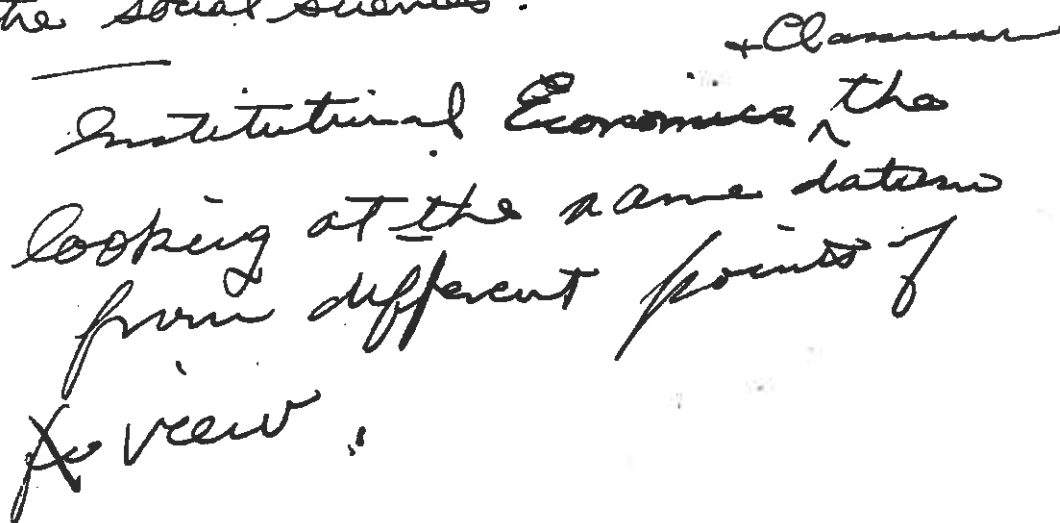 the social sciences.
+ Classical
Institutional Economics ^ the
looking at the same datum
from different points of
view.